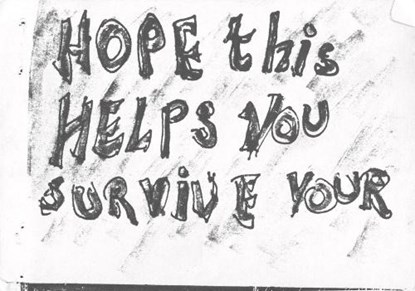 HOPE this
HELPS YOU
SURVIVE YOUR